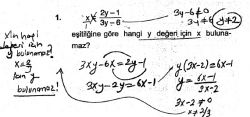 1. x = 2y − 1 / 3y − 6
3y-6≠0
y≠2
eşitliğine göre hangi y değeri için x buluna-
maz?
x'in hangi
değeri için
y bulunamaz!
bulunamaz!
3xy-6x=2y-1
3xy-2y=6x-1
y(3x-2)=6x-1
y= 6x-1 / 3x-2
3x-2≠0
x≠2/3